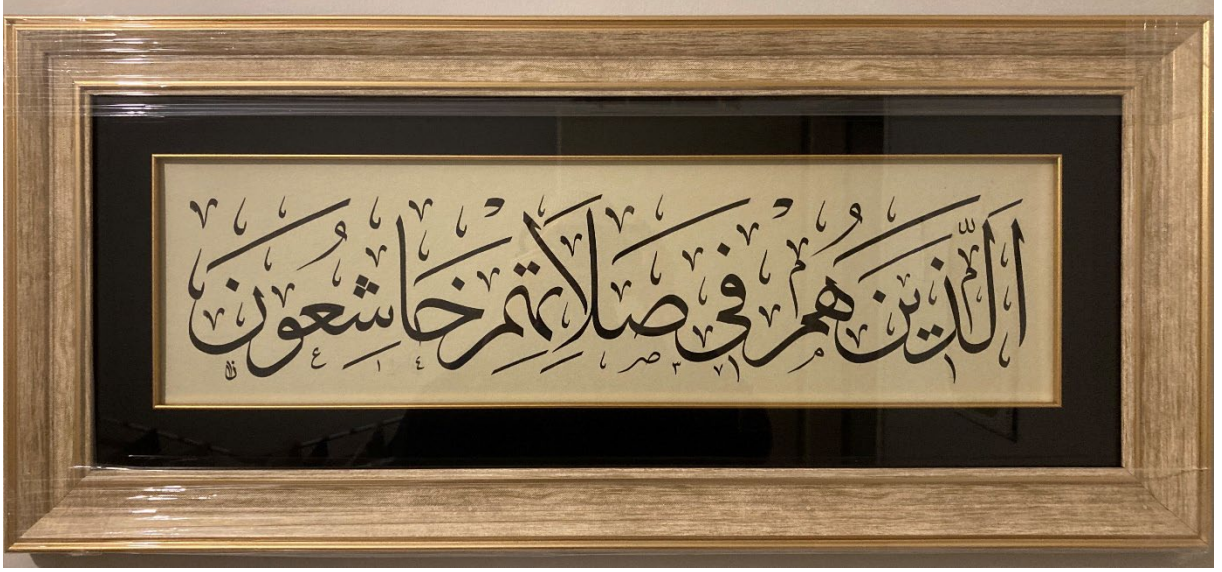 اَلَّذِينَ هُمْ فِي صَلَاتِهِمْ خَاشِعُونَ